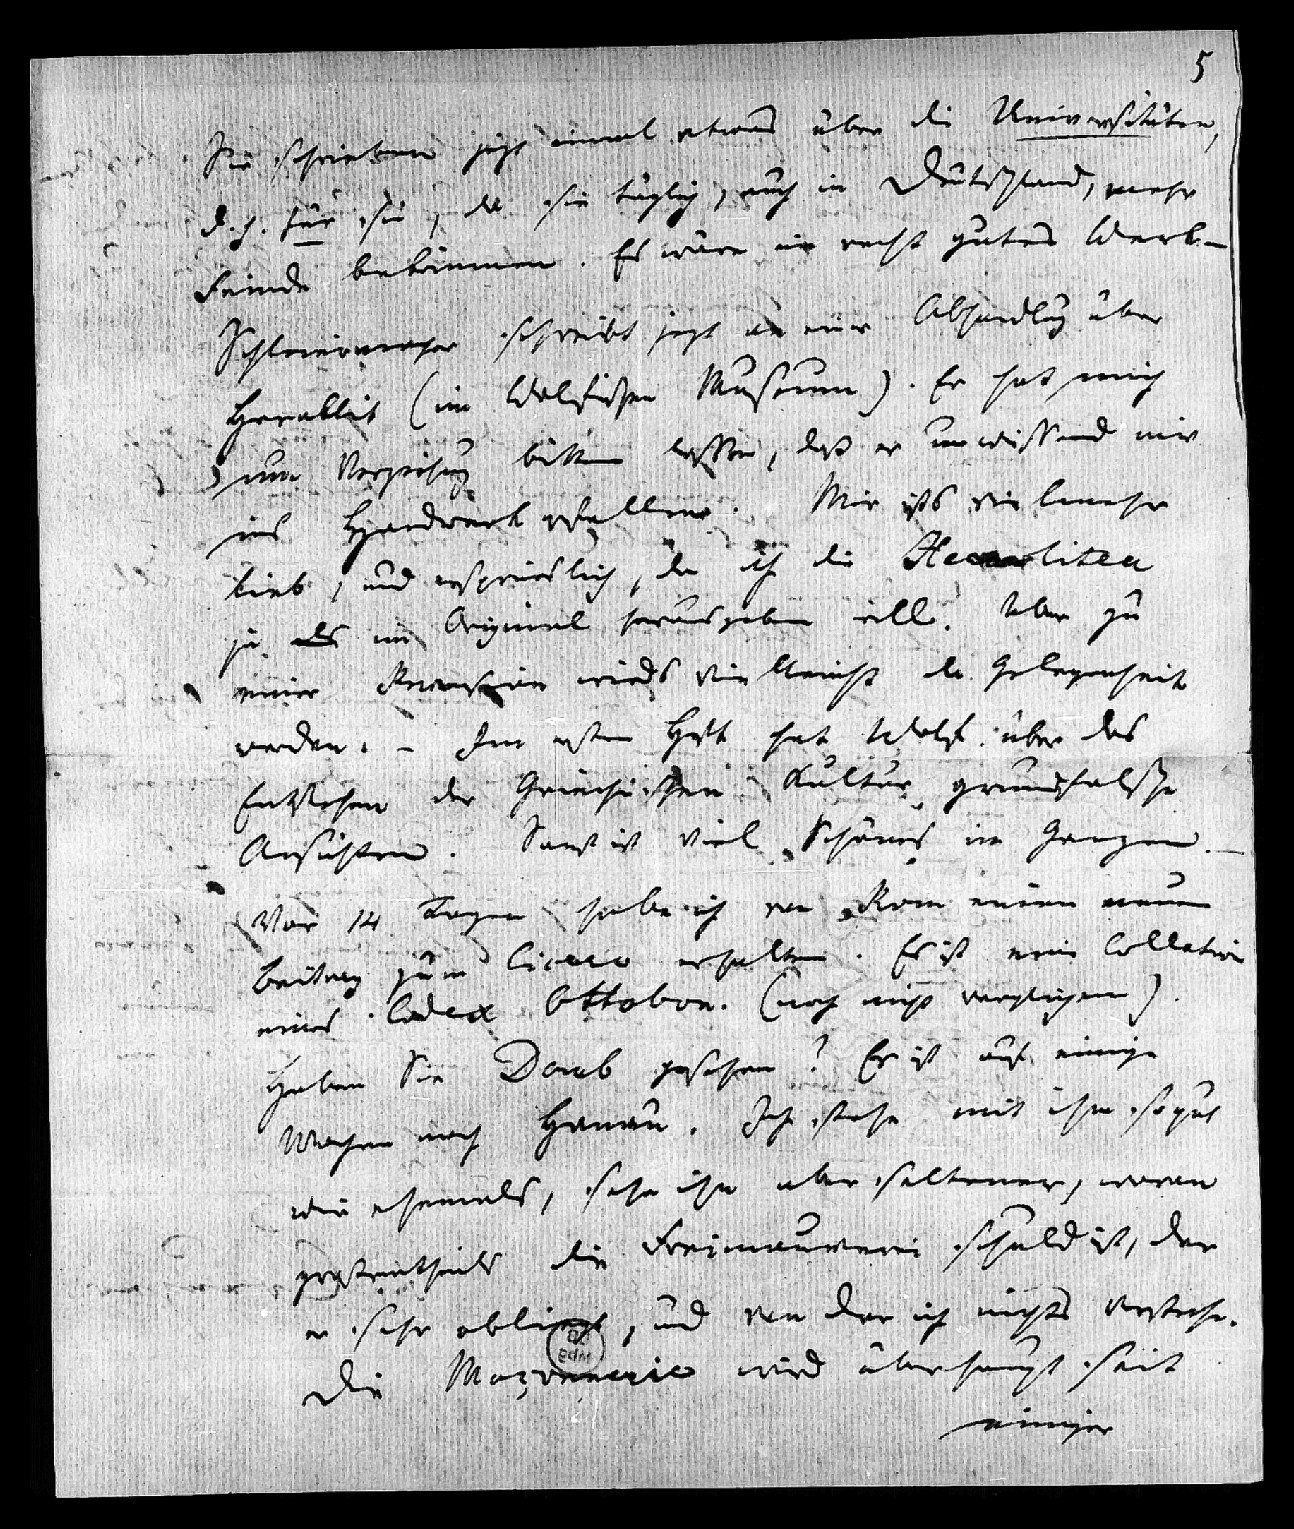 5
Sie schrieben jezt einmal etwas über die Universitäten,
d. h. für sie, da sie täglich, auch in Deutschland, mehr
Feinde bekommen. Es wäre ein recht gutes Werk. –
Schleiermacher schreibt jezt an einer Abhandlung über
Heraklit (im Wolfischen Museum). Er hat mich
um Verzeihung bitten lassen, daß er unwissend mir
ins Handwerk gefallen. Mir ists vielmehr
lieb, und ersprieslich, da ich die Heraclitea
ja im Original herausgeben will. Aber zu
einer Recension wirds vielleicht da Gelegenheit
werden. – Im ersten Heft hat Wolf über das
Entstehen der Griechischen Kultur grundfalsche
Ansichten. Sonst ist viel Schönes im Ganzen. –
Vor 14 Tagen habe ich von Rom einen neuen
Beitrag zum Cicero erhalten. Es ist eine Collation
eines Codex Ottobon. (noch nicht verglichen).
Haben Sie Daub gesehen? Er ist auf einige
Wochen nach Hanau. Ich stehe mit ihm so gut
wie ehemals, sehe ihn aber seltener, woran
grostentheils die Freimaurerei schuld ist, der
er sehr obliegt, und von der ich nichts verstehe.
Die Maçonnerie wird überhaupt seit
einiger